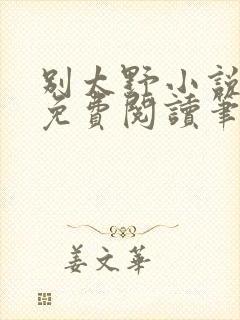 別太野小說
免費閱讀筆
姜文華